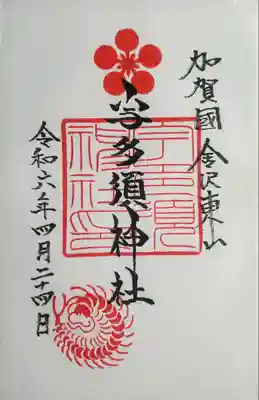 加賀國 金沢東山
宇多須神社
令和六年四月二十四日
宇多須神社印